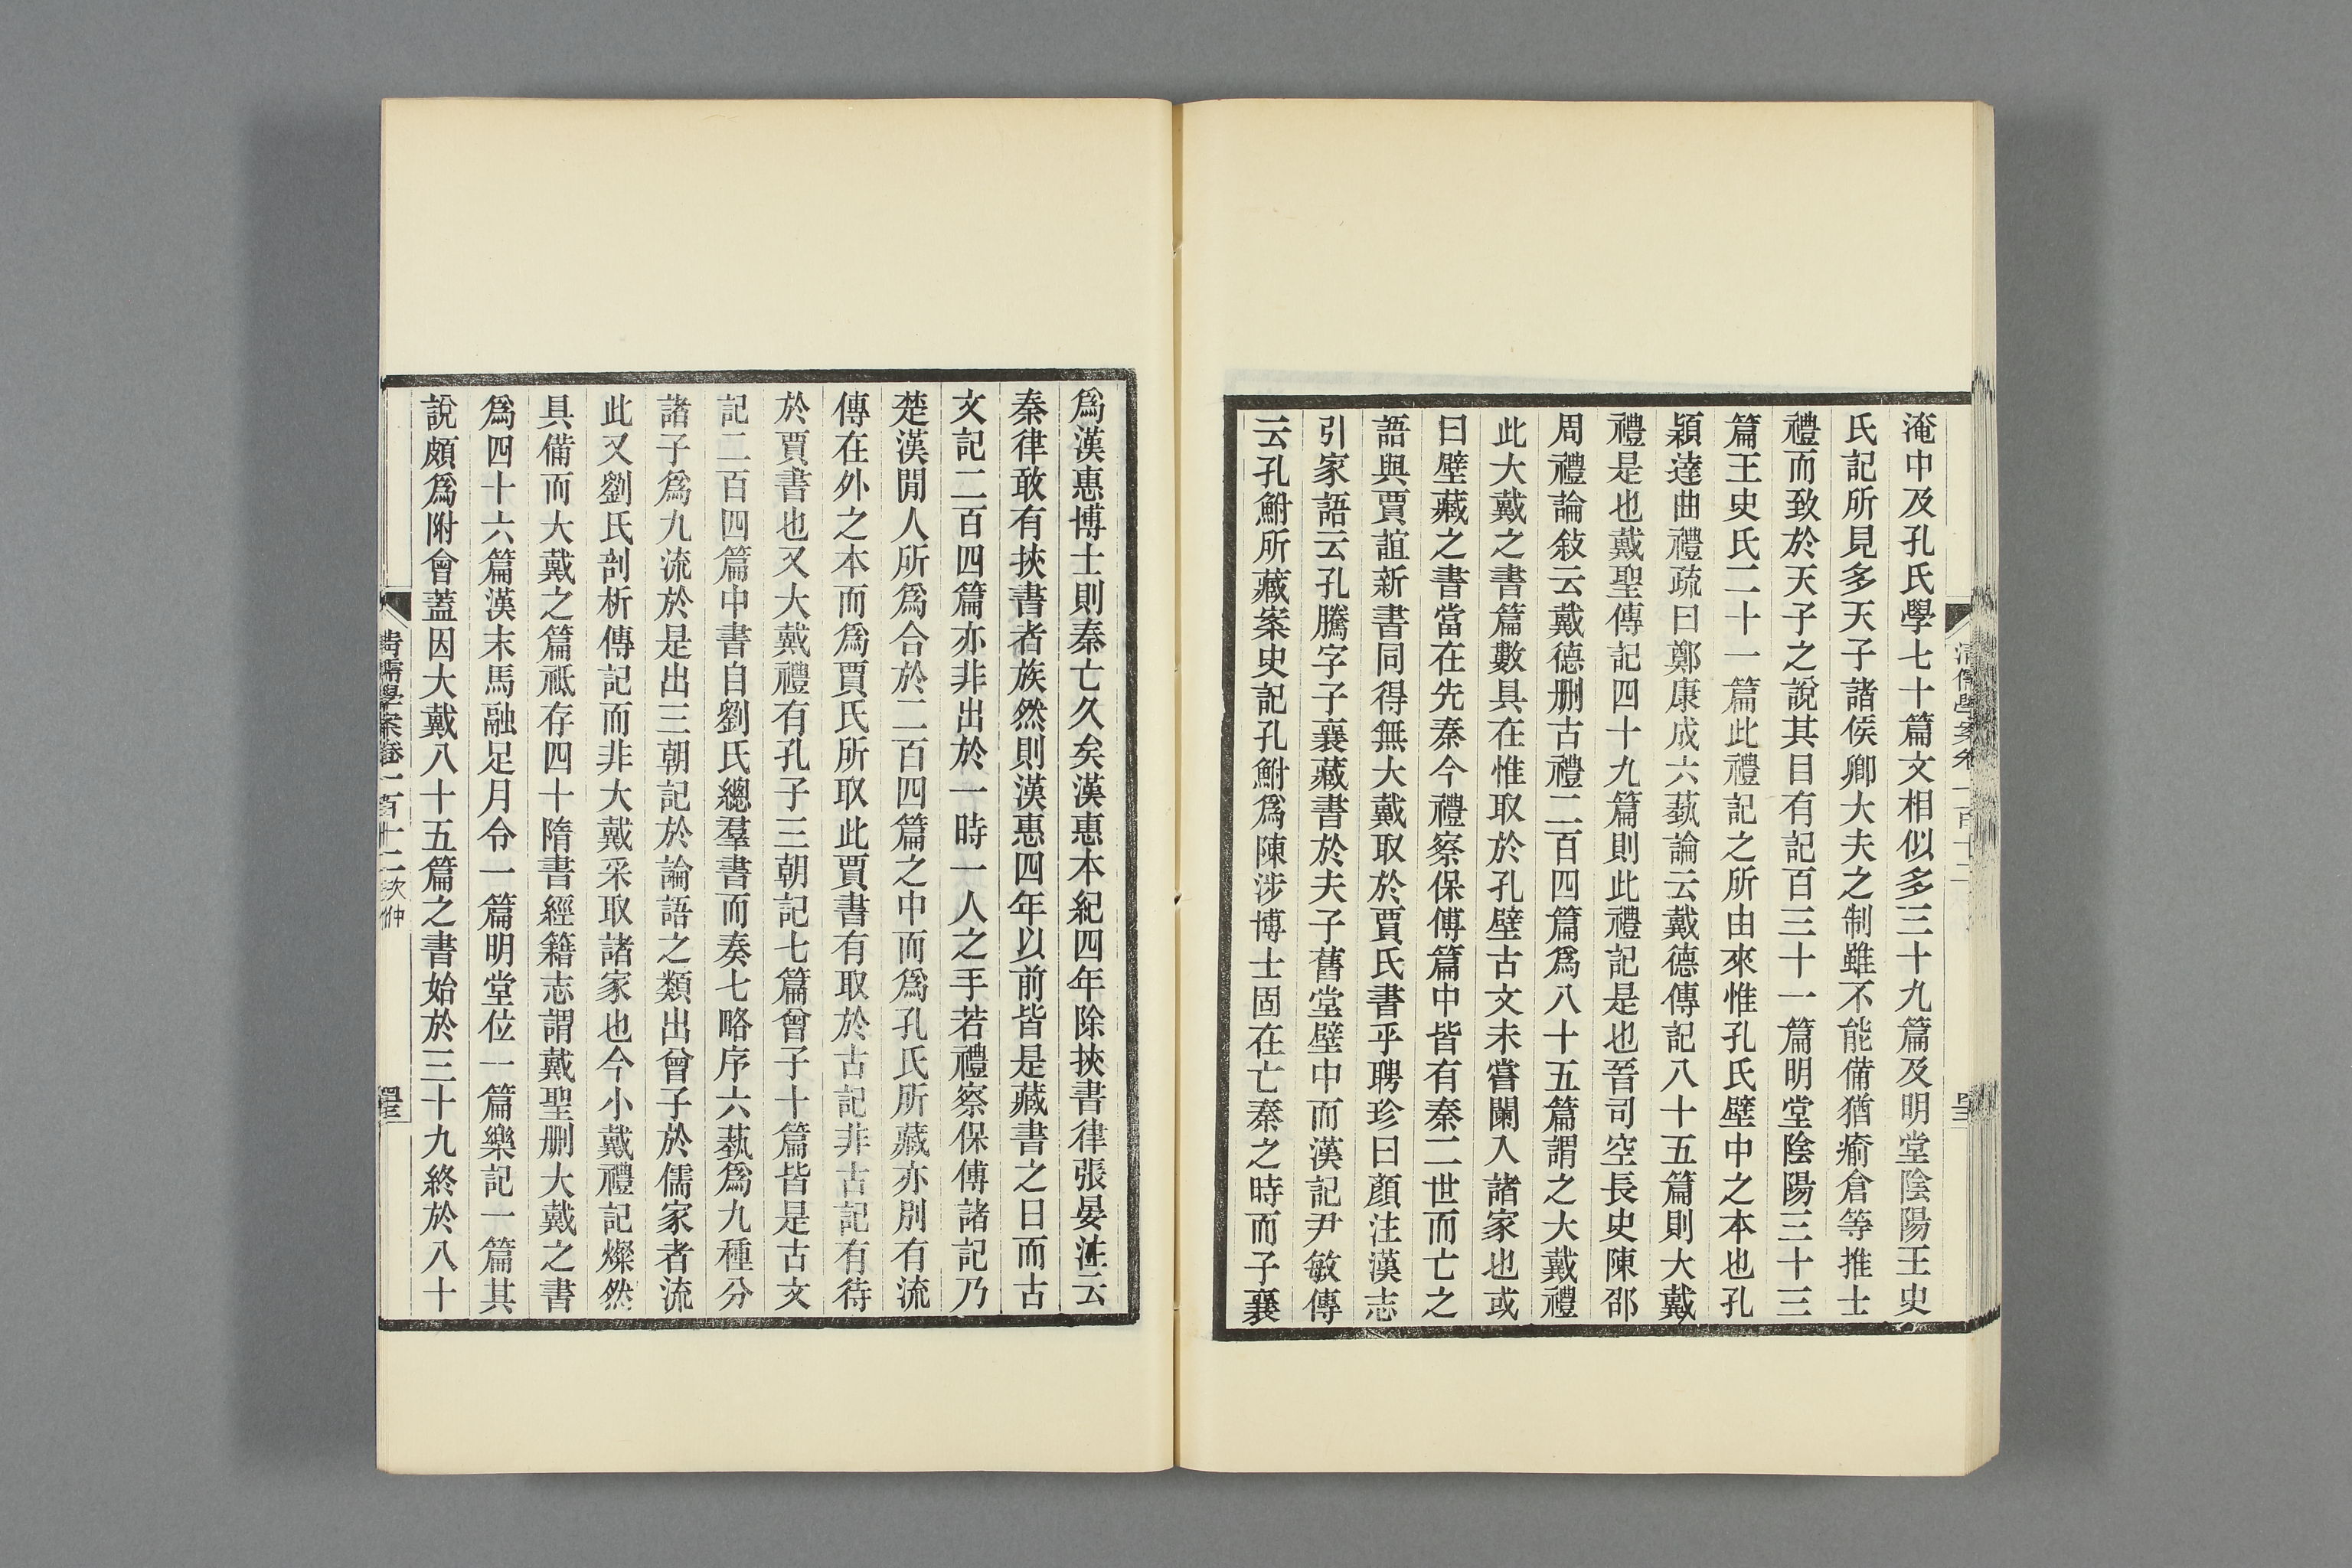 淹中及孔氏學七十篇文相似多三十九篇及明堂陰陽王史
氏記所見多天子諸侯卿大夫之制雖不能備猶瘉倉等推士
禮而致於天子之說其目有記百三十一篇明堂陰陽三十三
篇王史氏二十一篇此禮記之所由來惟孔氏壁中之本也孔
穎達曲禮疏曰鄭康成六蓺論云戴德傳記八十五篇則大戴
禮是也戴聖傳記四十九篇則此禮記是也晉司空長史陳邵
周禮論敍云戴德刪古禮二百四篇爲八十五篇謂之大戴禮
此大戴之書篇數具在惟取於孔壁古文未嘗闌入諸家也或
曰壁藏之書當在先秦今禮察保傅篇中皆有秦二世而亡之
語與賈誼新書同得無大戴取於賈氏書乎聘珍曰顏注漢志
引家語云孔騰字子襄藏書於夫子舊堂壁中而漢記尹敏傳
云孔鮒所藏案史記孔鮒爲陳涉博士固在亡秦之時而子襄
清儒學案卷一百十二
爲漢惠博士則秦亡久矣漢惠本紀四年除挾書律張晏注云
秦律敢有挾書者族然則漢惠四年以前皆是藏書之日而古
文記二百四篇亦非出於一時一人之手若禮察保傅諸記乃
楚漢閒人所爲合於二百四篇之中而爲孔氏所藏亦別有流
傳在外之本而爲賈氏所取此賈書有取於古記非古記有待
於賈書也又大戴禮有孔子三朝記七篇曾子十篇皆是古文
記二百四篇中書自劉氏總羣書而奏七略序六蓺爲九種分
諸子爲九流於是出三朝記於論語之類出曾子於儒家者流
此又劉氏剖析傳記而非大戴采取諸家也今小戴禮記燦然
具備而大戴之篇祗存四十隋書經籍志謂戴聖刪大戴之書
爲四十六篇漢末馬融足月令一篇明堂位一篇樂記一篇其
說頗爲附會蓋因大戴八十五篇之書始於三十九終於八十
清儒學案卷一百十二 次仲